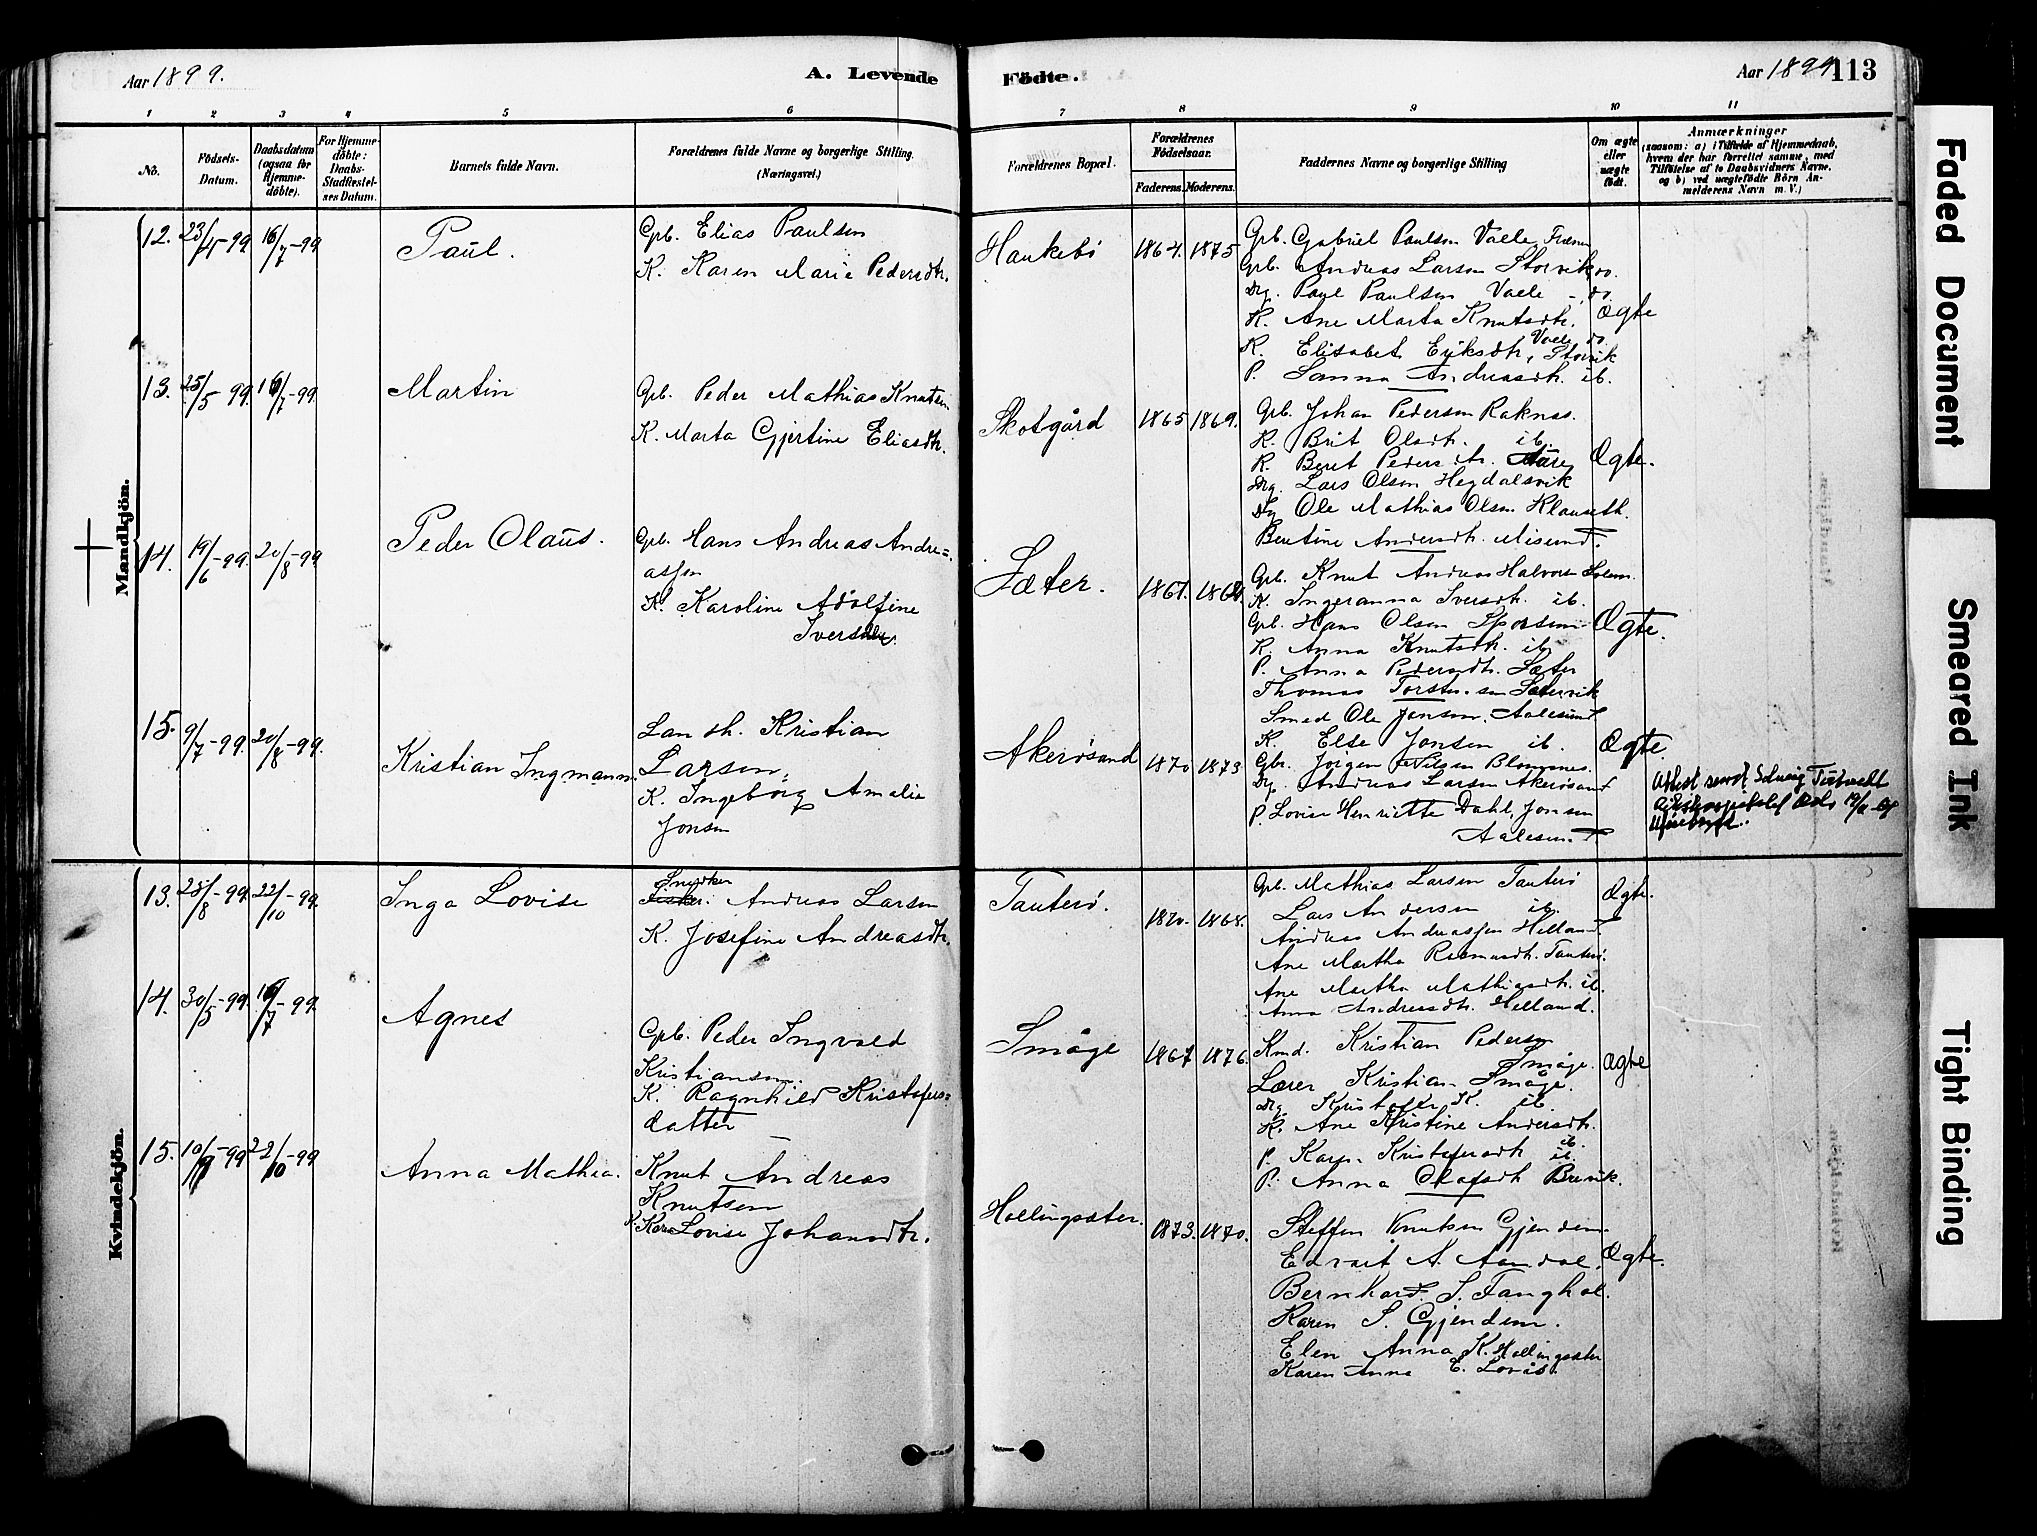 Aar 1899.
A. Levende
Födte.
Aar 1899
113
1 2 3 4 5 6 7 8 9 10 11
No.
Födsels-Datum.
Daabsdatum (ogsaa for Hjemme-döbte).
For Hjemme-döbte: Daabs-Stadfæstel-ses Datum.
Barnets fulde Navn.
Forældrenes fulde Navne og borgerlige Stilling.
(Næringsvei.)
Forældrenes Bopæl.
Forældrenes Födselsaar.
Faderens. Moderens.
Faddernes Navne og borgerlige Stilling
Om ægte eller uægte födt.
Anmærkninger
(saasom: a) i Tilfælde af Hjemmedaab,
hvem der har forrettet samme, med
Tilföielse af to Daabsvidners Navne,
og b) ved uægtefödte Börn An-
melderens Navn m. V.)
Mandkjön.
12. 23/4-99 16/7-99
Paul.
Gpb. Elias Paulsen
K. Karen Marie Pedersdtr.
Haukebö
1864. 1875
Gpb. Gabriel Paulsen Vaele, Fræn
Gpb. Andreas Larsen Storvik, do.
Dg. Paul Paulsen Vaele -, do.
K. Ane Marta Knutsdtr.
Vaele, do.
K. Elisabet Eriksdtr, Storvik
P. Sanna Andreasdtr. ib.
Ægte
13. 25/5 99. 16/7-99
Martin
Gpb. Peder Mathias Knutsen
K. Marta Gjertine Eliasdtr.
Skotgård
1865 1869.
Gpb. Johan Pedersen Raknes.
K. Brit Olsdtr. ib.
K. Beret Pedersdtr.
Dg. Lars Olsen Hegdalsvik
Dg Ole Mathias Olsen Klauseth.
Bentine Andersdtr. Misund.
Ægte.
14. 19/6-99. 20/8-99
Peder Olaus.
Gpb. Hans Andreas Andre=
assen
K. Karoline Adolfine
Iversdtr.
Sæter.
1867. 1864.
Gpb. Knut Andreas Halvorsen Solem.
K. Ingeranna Iversdtr. ib.
Gpb. Hans Olsen
K. Anna Knutsdtr. ib.
P. Anna Pedersdtr. Sæter
Thomas Sætervik
Ægte.
15. 9/7-99. 20/8-99.
Kristian Ingmann.
Landh. Kristian
Larsen.
K. Ingeborg Amalie
Jonsen
Akerösund
1870 1873
Smed Ole Jonsen. Aalesund
K. Else Jonsen ib.
Gbr. Jorgen Nilsen Blomnes.
Dg. Andreas Larsen Akerösund
P. Lovise Henriette Dahl, Jonsen
Aalesund
Ægte.
Attest sendt Solveig
Oslo
Kvindekjön.
13. 25/8-99. 22/10-99.
Inga Lovise
Snedker
Fisker. Andreas Larsen
K. Josefine Andreasdtr.
Tauterö.
1870. 1868.
Gpb. Mathias Larsen Tauterö
Lars Andersen ib.
Andreas Andreassen Helland.
Ane Martha Rasmusdtr. Tauterö.
Ane Martha Mathiasdtr. ib.
Anna Andreasdtr. Helland.
Ægte.
14. 30/5-99. 16/7-99.
Agnes
Gpb. Peder Ingvald
Kristiansen.
K. Ragnhild Kristofers=
datter
Småge
1867 1876.
Kmd. Kristian Pedersen
Småge.
Lærer Kristian Småge.
Dg. Kristofer K. ib.
K. Ane Kristine Andersdtr.
ib.
P. Karen Kristofersdtr ib.
P. Anna Olafsdtr Brevik.
Ægte
15. 10/9-99 22/10-99
Anna Mathea.
Knut Andreas
Knutsen
K. Karen Lovise Johansdtr.
Hollingsæter.
1873. 1870.
Steffen Knutsen Gjendem.
Edvart A. Aandal.
Bernhard. S. Tanghol.
Karen S. Gjendem.
Elen Anna K. Hollingsæter
Karen Anna E. Lovås.
Ægte.
Faded Document
Smeared Ink
Tight Binding